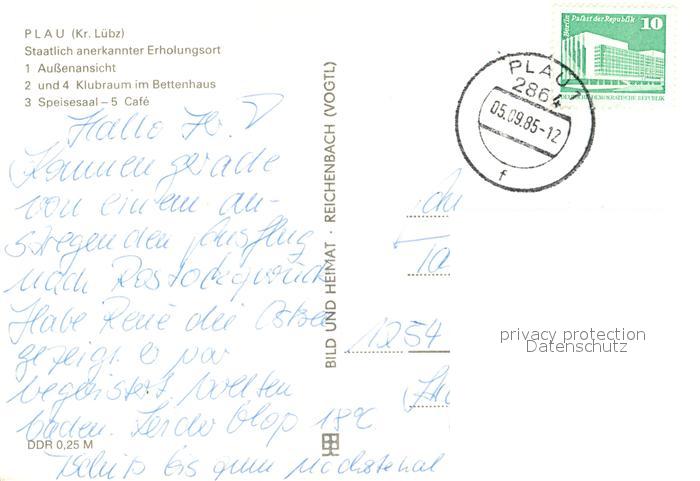 PLAU (Kr. Lübz)
Staatlich anerkannter Erholungsort
1 Außenansicht
2 und 4 Klubraum im Bettenhaus
3 Speisesaal – 5 Café
Hallo
Kommen gerade
von einem an-
stregenden Ausflug
nach Rostock zurück
Habe René die Ostsee
gezeigt. Er war
begeistert, wollten
baden. Leider blos 18°C
Tschüß bis zum nächstenal
DDR 0,25 M
BILD UND HEIMAT · REICHENBACH (VOGTL)
Berlin Palast der Republik 10
DEUTSCHE DEMOKRATISCHE REPUBLIK
PLAU 1
2864
05.09.85-12
f
1254
privacy protection
Datenschutz